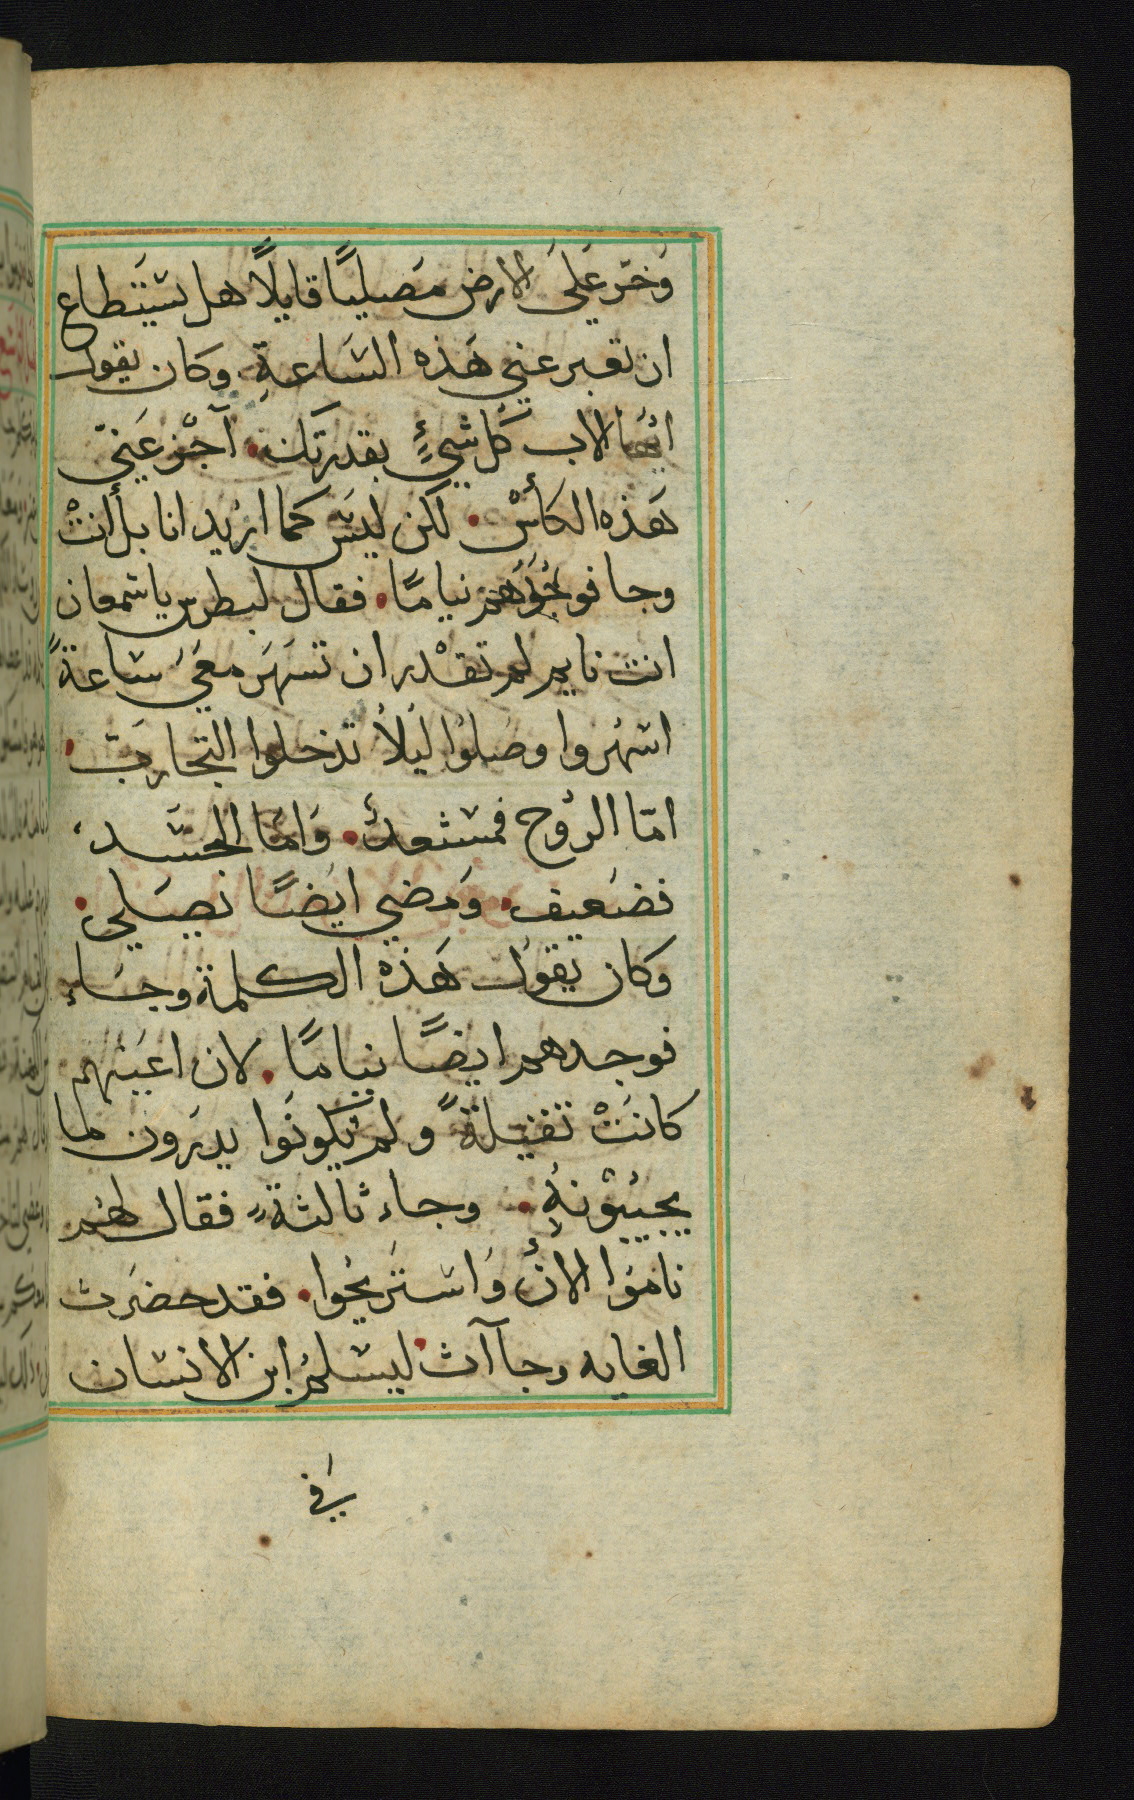 وَخرّ عَلَي الارض مَصَليًا قايلًا هل يستَطاع
ان تعبر عني هَذه السَاعةِ. وكان يقول
ايُهَا الاب كل شيءٍ بقدرتَك. آجْز عَنيّ
هَذه الكأسْ. لكن ليسَ كما اريد انا بل أنتْ
وجا فوجَدَهَم نيامًا. فقال لبطرس ياسمعان
انت نايم لم تقدْر ان تسهَرَ معَيَ ساعةً
اسهَروا وصَلوُا ليَلاُ تدخلوا التجاربَ.
امّا الروُح فمستعدٌ. وَامَا الجسَد
فضعَيف. وَمضي ايضًا يصَلي.
وكان يقول هَذه الكلمة وجَاء
فوجدهم ايضًا نيامًا. لان اعيَنهم
كانَتْ ثقيلةً ولم يَكونَوا يدرَون لما
يجيبْونهُ. وجاء ثالثةً فقال لهَم
نامَوا الانُ وَاستَريحُوا. فقد حضرَت
الغايه وجا آت. ليسلمُ ابن الانسان
في